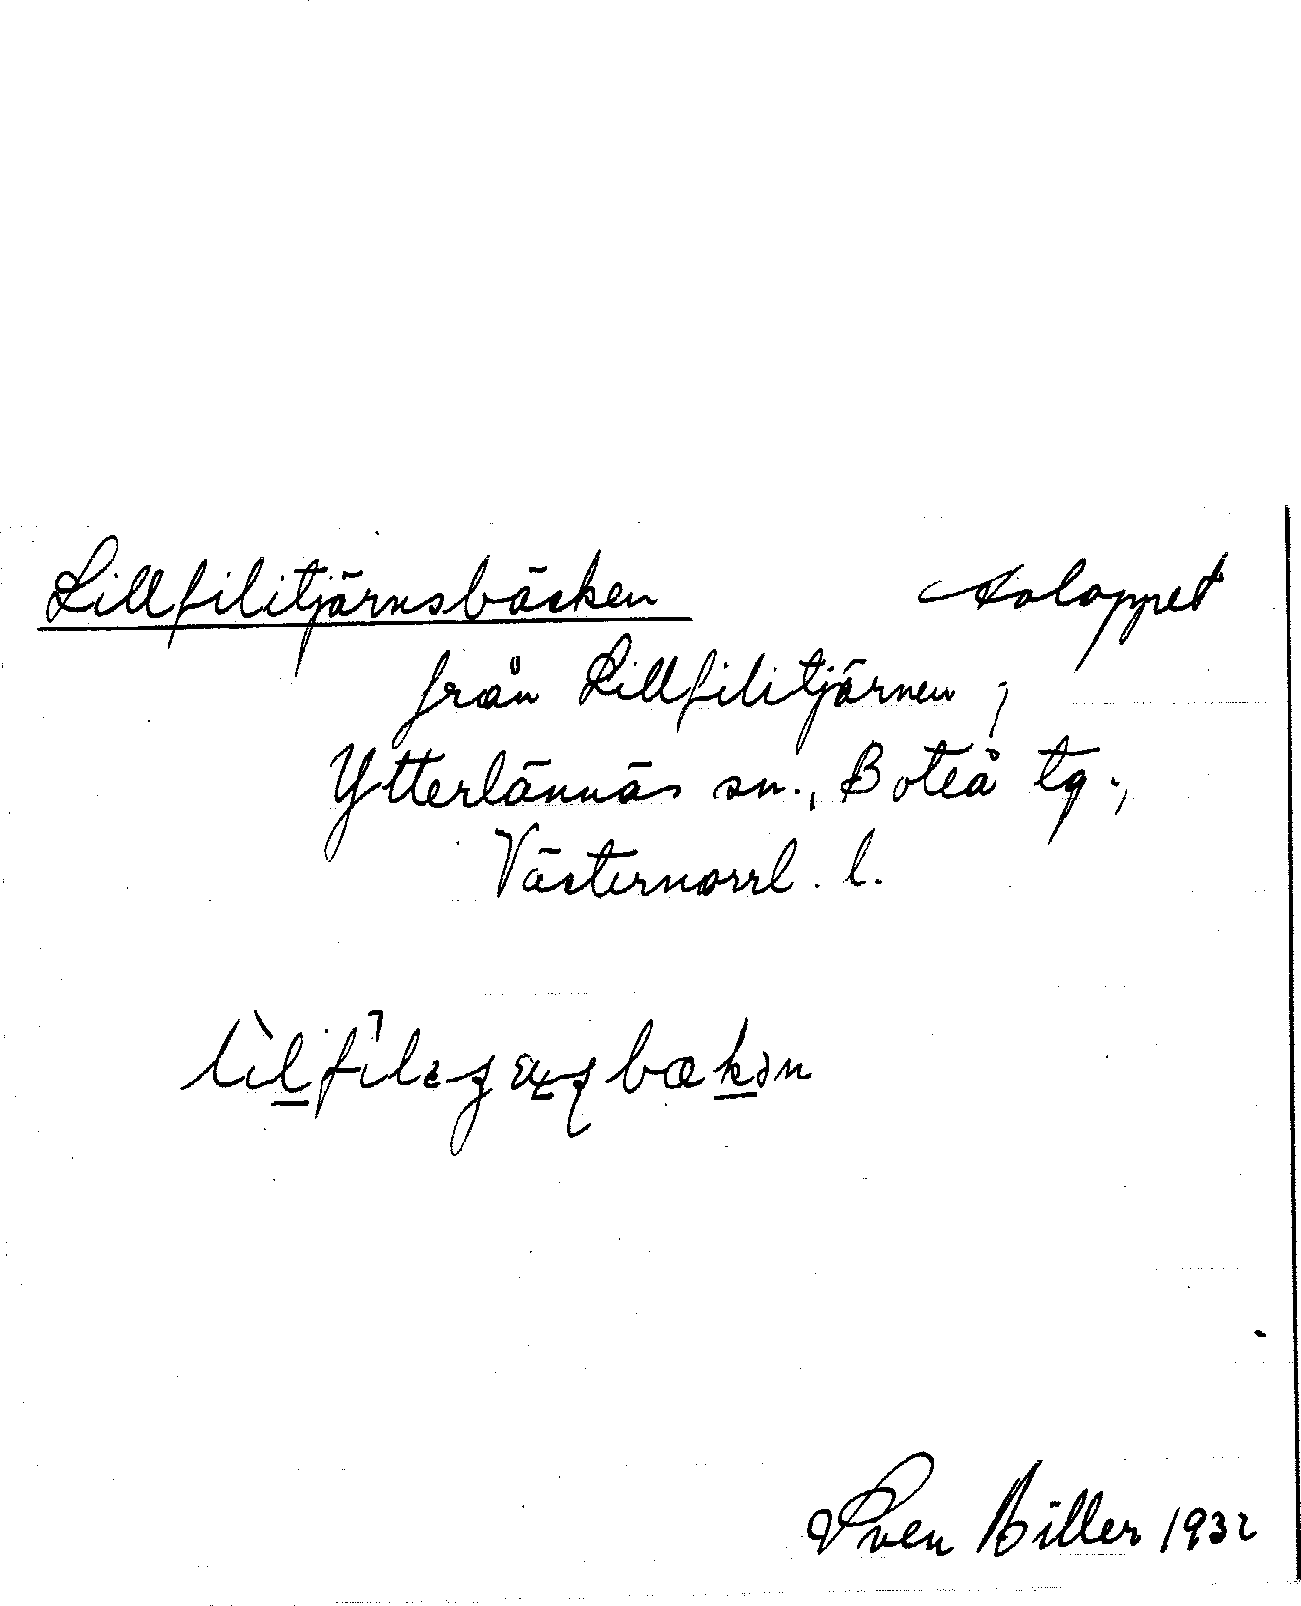 Lillfilitjärnsbäcken Avloppet
från Lillfilitjärnen,
Ytterlännäs sn., Boteå tg.,
Västernorrl. l.
Sven Biller 1932